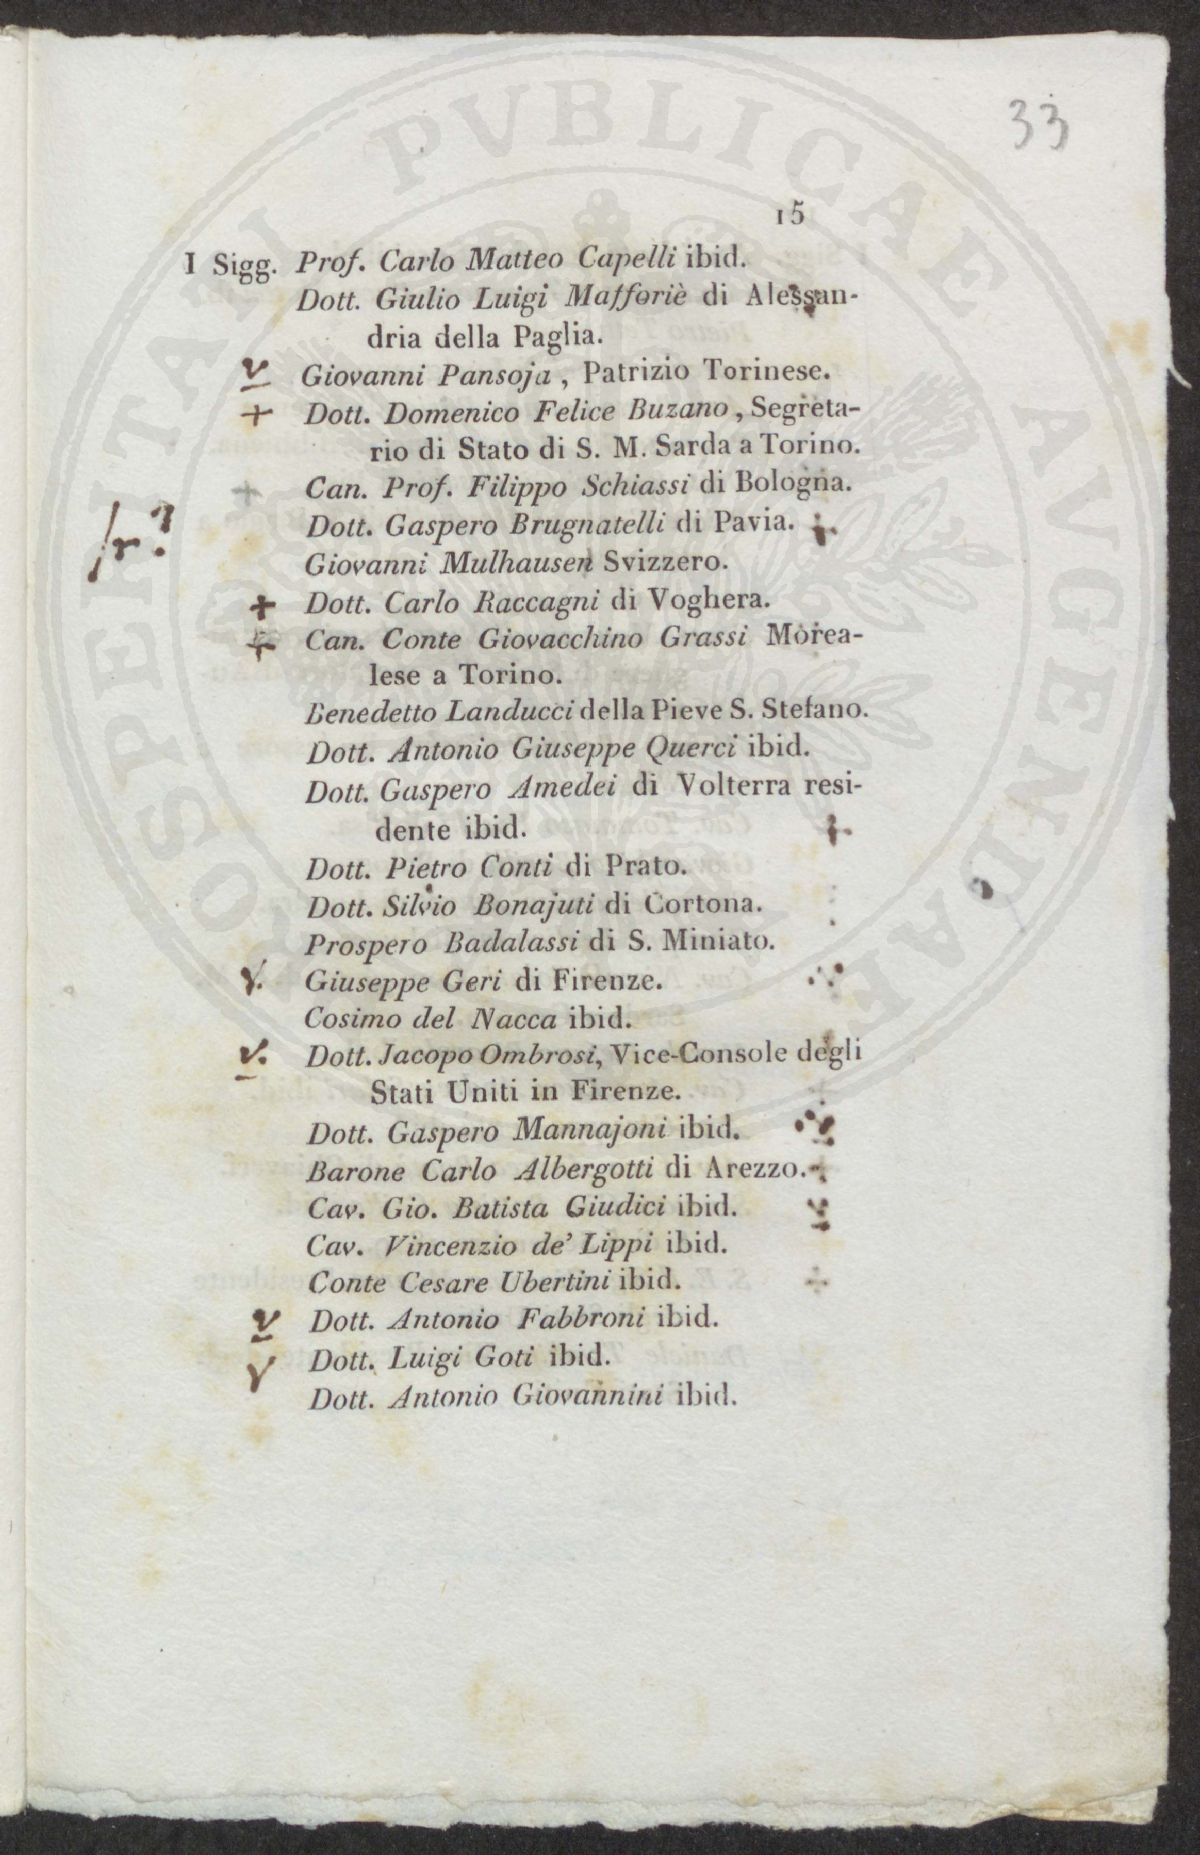 33
15
I Sigg. Prof. Carlo Matteo Capelli ibid.
Dott. Giulio Luigi Mafforiè di Alessan-
dria della Paglia.
v Giovanni Pansoja, Patrizio Torinese.
+ Dott. Domenico Felice Buzano, Segreta-
rio di Stato di S. M. Sarda a Torino.
+ Can. Prof. Filippo Schiassi di Bologna.
Dott. Gaspero Brugnatelli di Pavia.
Giovanni Mulhausen Svizzero.
+ Dott. Carlo Raccagni di Voghera.
+ Can. Conte Giovacchino Grassi Morea-
lese a Torino.
Benedetto Landucci della Pieve S. Stefano.
Dott. Antonio Giuseppe Querci ibid.
Dott. Gaspero Amedei di Volterra resi-
dente ibid.
Dott. Pietro Conti di Prato.
Dott. Silvio Bonajuti di Cortona.
Prospero Badalassi di S. Miniato.
v. Giuseppe Geri di Firenze.
Cosimo del Nacca ibid.
v. Dott. Jacopo Ombrosi, Vice-Console degli
Stati Uniti in Firenze.
Dott. Gaspero Mannajoni ibid.
Barone Carlo Albergotti di Arezzo.
Cav. Gio. Batista Giudici ibid.
Cav. Vincenzio de' Lippi ibid.
Conte Cesare Ubertini ibid.
v Dott. Antonio Fabbroni ibid.
v Dott. Luigi Goti ibid.
Dott. Antonio Giovannini ibid.
PROSPERITATI PVBLICAE AVGENDAE